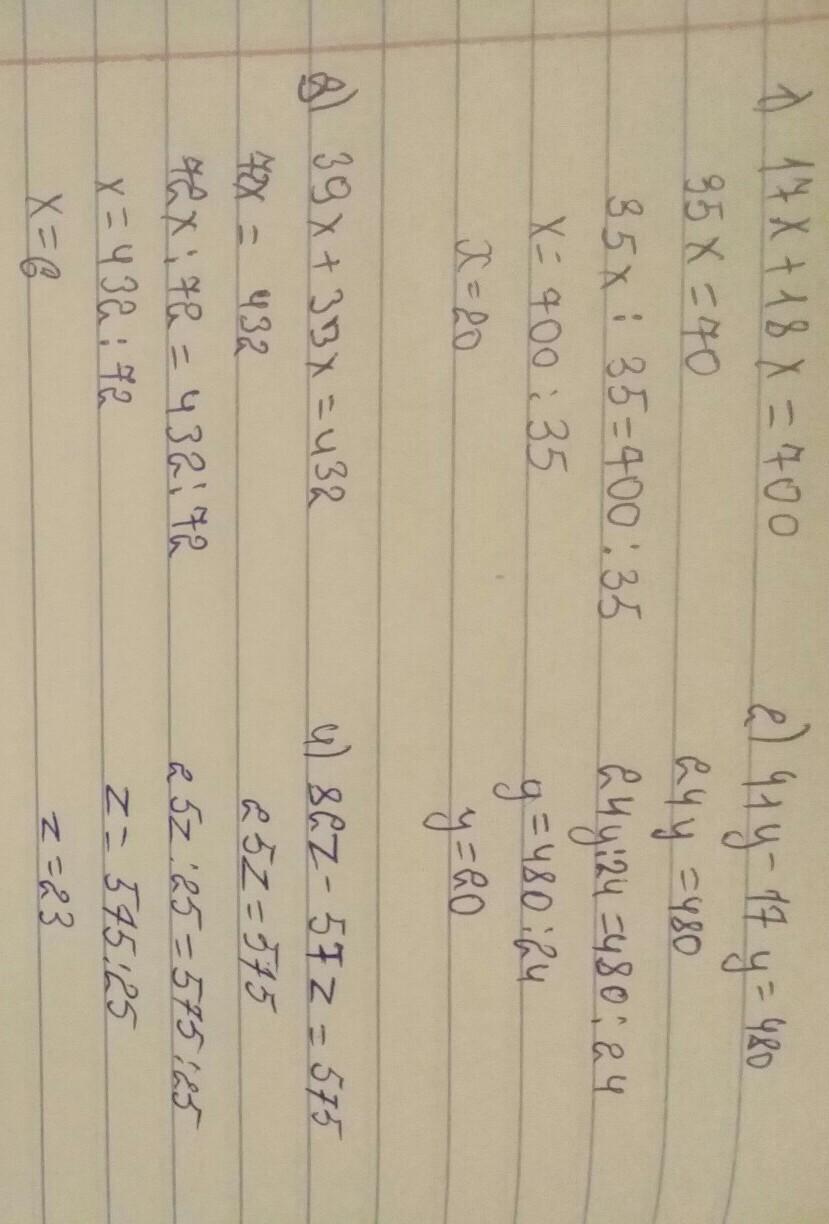 1) 17x+18x=700
35x=70
35x:35=700:35
x=700:35
x=20
2) 41y-17y=480
24y=480
24y:24=480:24
y=480:24
y=20
3) 39x+33x=432
72x=432
72x:72=432:72
x=432:72
x=6
4) 82z-57z=575
25z=575
25z:25=575:25
z=575:25
z=23